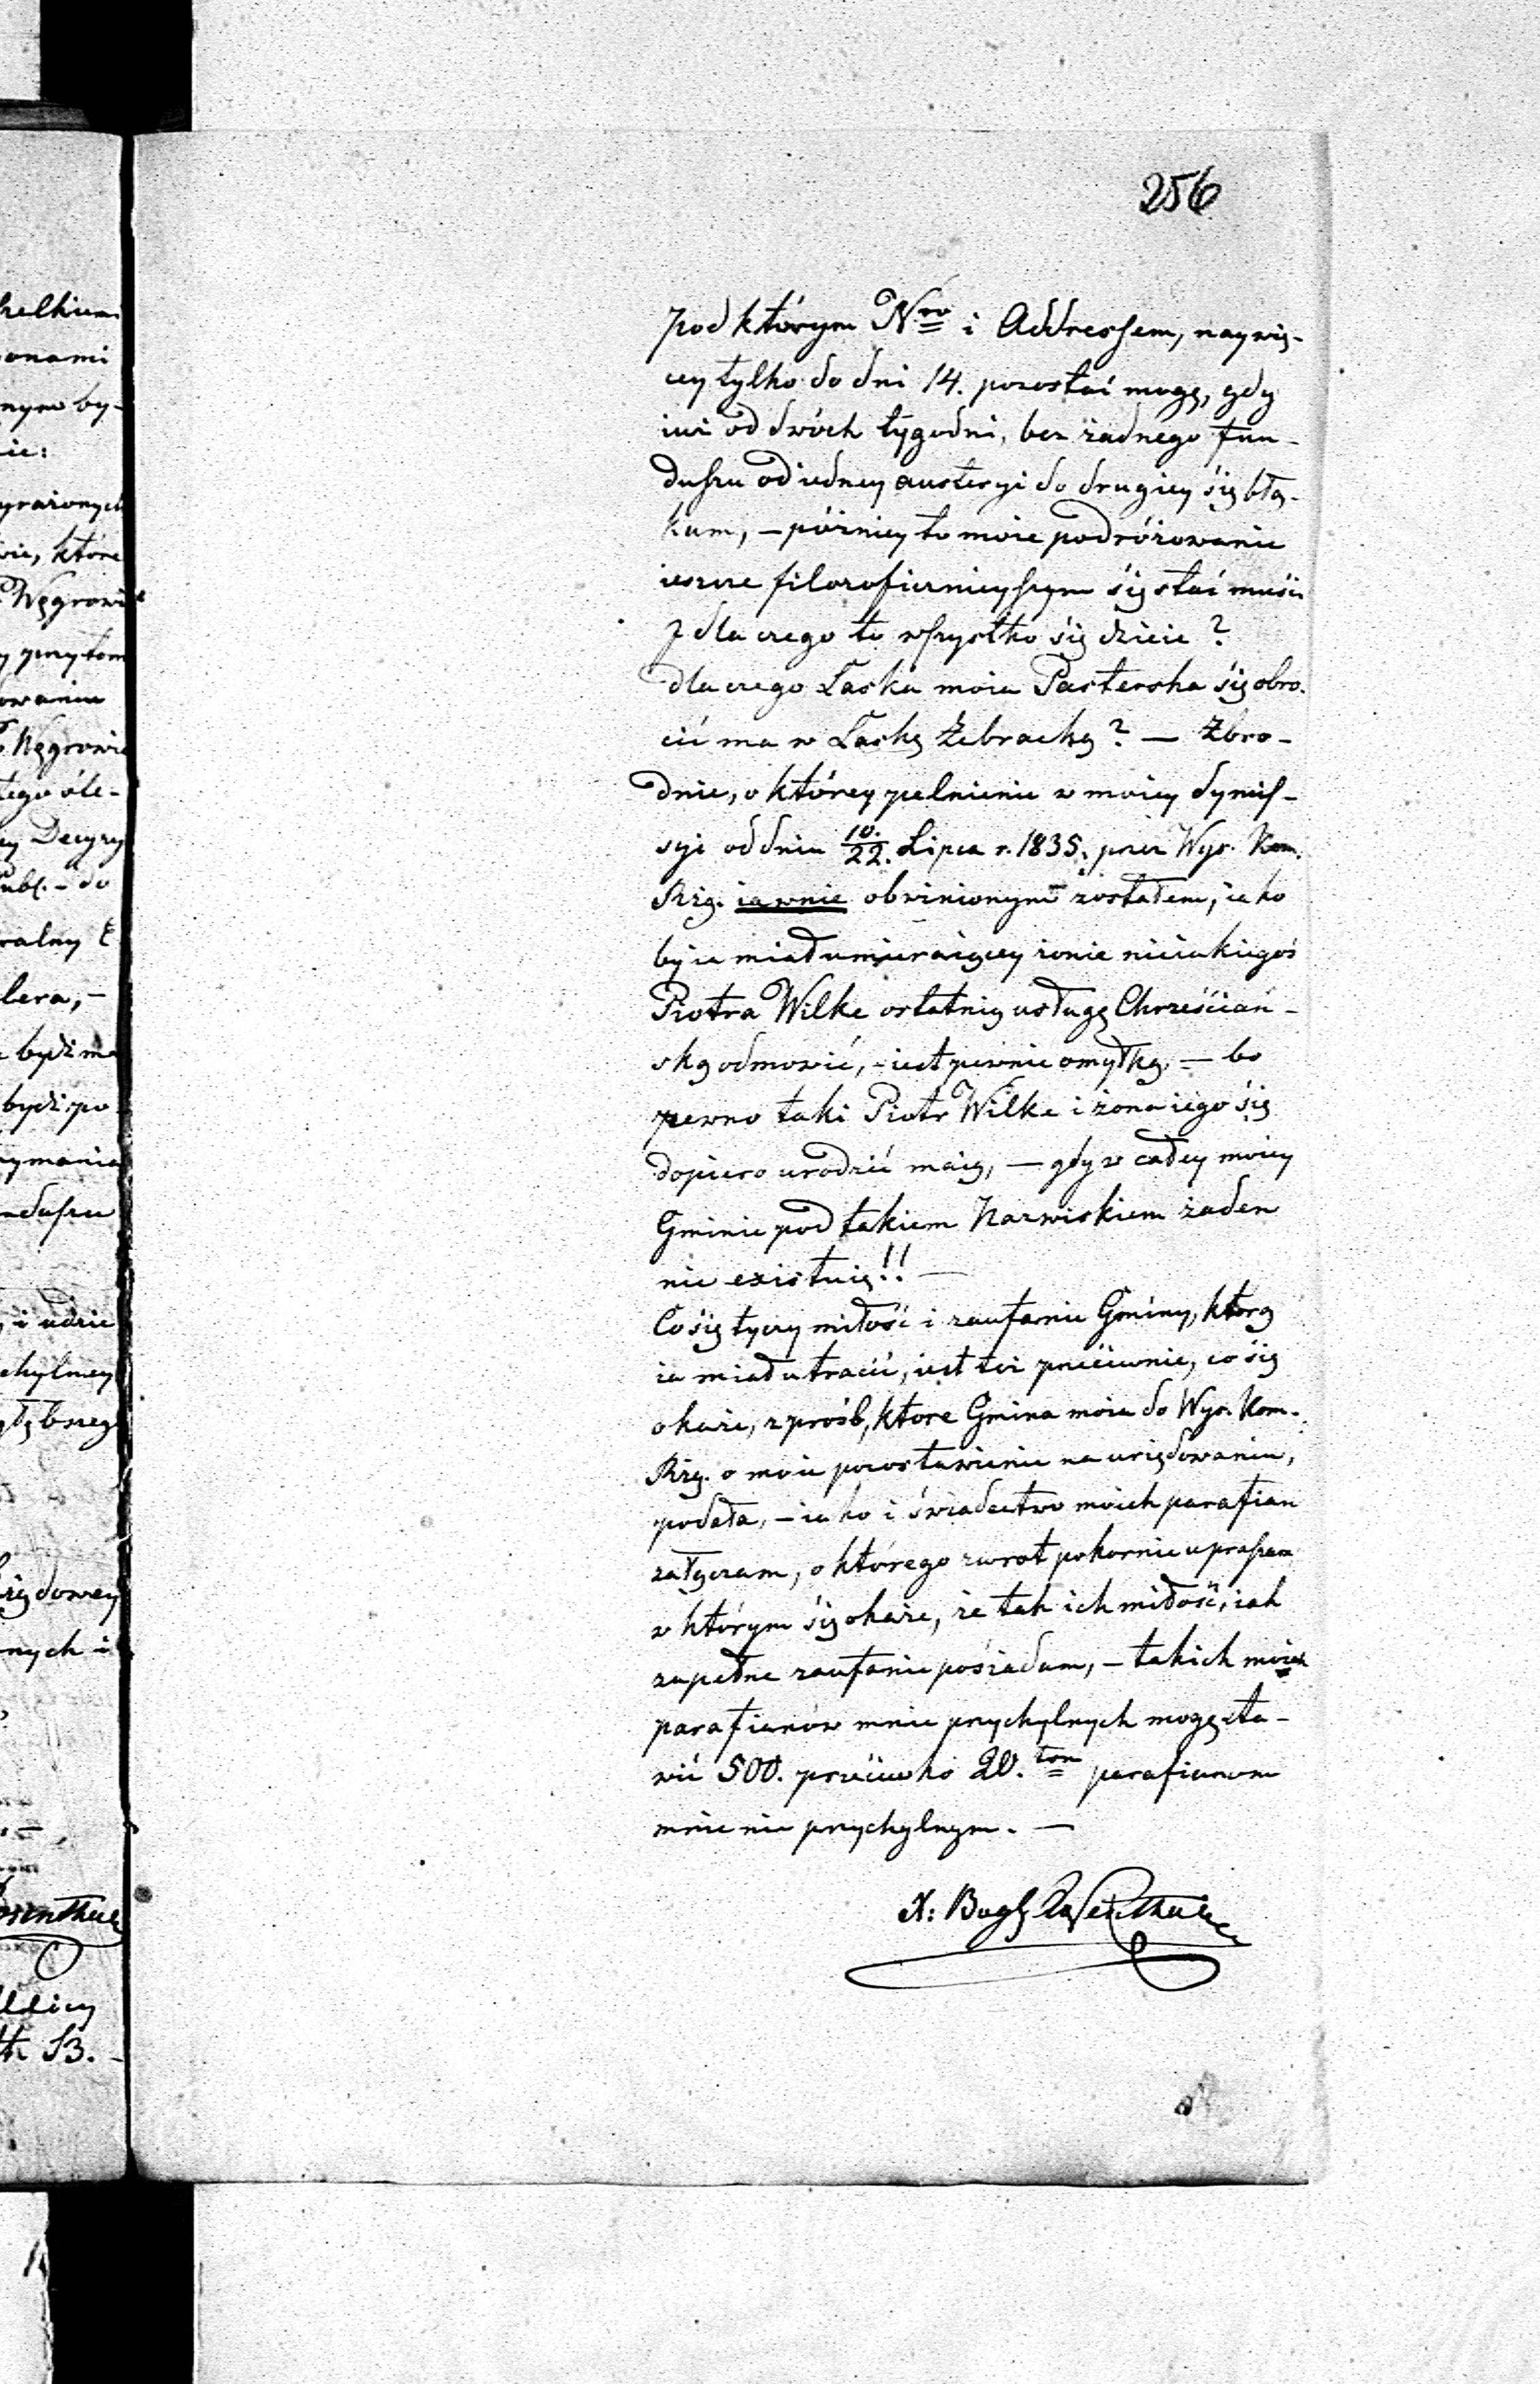 256
pod którym Nro i Addressem, naywię-
cey tylko do dni 14. pozostać mogę, gdy
iuż od dwóch tygodni, bez żadnego fun-
duszu od iedney austeryi do drugiey się błą-
kam, – późniey to moie podróżowanie
ieszcze filozoficznieyszym się stać musi
I dla czego to wszystko się dzieie?
dla czego Laska moia Pasterska się obro-
cić ma w Laskę Żebracką? — Zbro-
dnie, o którey pełnienie w moiey dymis-
syi od dnia 10./22. Lipca r. 1835. przez Wys. Kom.
Rzą. iawnie obwinionym zostałem, iako
by ia miał umieraiącey żonie nieiakiegoś
Piotra Wilke ostatnią usługę Chrześciań-
ską odmowić, – iest pewnie omyłką. — bo
pewno taki Piotr Wilke i żona iego się
dopiero urodzić maią, — gdy w całey moiey
Gminie pod takiem Nazwiskiem żaden
nie existuię!! —
Co się tyczy miłość i zaufanie Gminy, ktorą
ia miał utracić, iest toż przeciwnie, co się
okaże, z prośb, ktore Gmina moia do Wys. Kom.
Rzą. o moie pozostawienie na urzędowaniu,
podała, – iako i świadectwo moich parafian
załączam, o którego zwrot pokornie upraszam
w którym się okaże, że tak ich miłość, iak
zupełne zaufanie posiadam, – takich moich
parafianów mnie przychylnych mogę sta-
wić 500. przeciwko 20.tom parafianom
mnie nie przychylnym. —
X: Bog. Rosenthal
helkiemi
onami
nym by-
ie:
yrażonych
które
Węgrowi
przytom
owania
Węgrowie
tego
Decyzy
Publ. – do
ralny
lera, –
bydź ma
bydź po
ymania
duszu
i udzie
chylney
rzędowey
nych i
osenthal
th 13. –